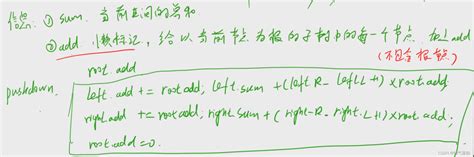 信息: ① sum. 当前区间的总和
② add 懒标记, 给以当前节点为根的子树中的每一个节点 加上add
(不包含根节点)
root.add
pushdown.
left.add += root.add, left.sum += (left.R - left.L + 1) × root.add
right.add += root.add, right.sum += (right.R - right.L + 1) × root.add.
root.add = 0.